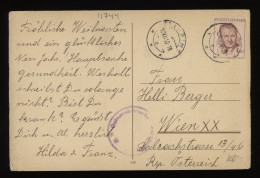 11744
Fröhliche Weihnachten
und ein glückliches
Neu Jahr, Hauptsache
gesundheit. Weshalb
schreibst Du solange
nicht? Bist Du
krank? Es grüsst
Dich u. al. herzlich
Hilda & Franz.
Frau
Helli Berger
Wien XX
Rep. Österreich